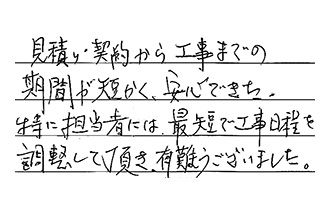 見積り・契約から工事までの
期間が短かく、安心できた。
特に担当者には、最短で工事日程を
調整して頂き、有難うございました。